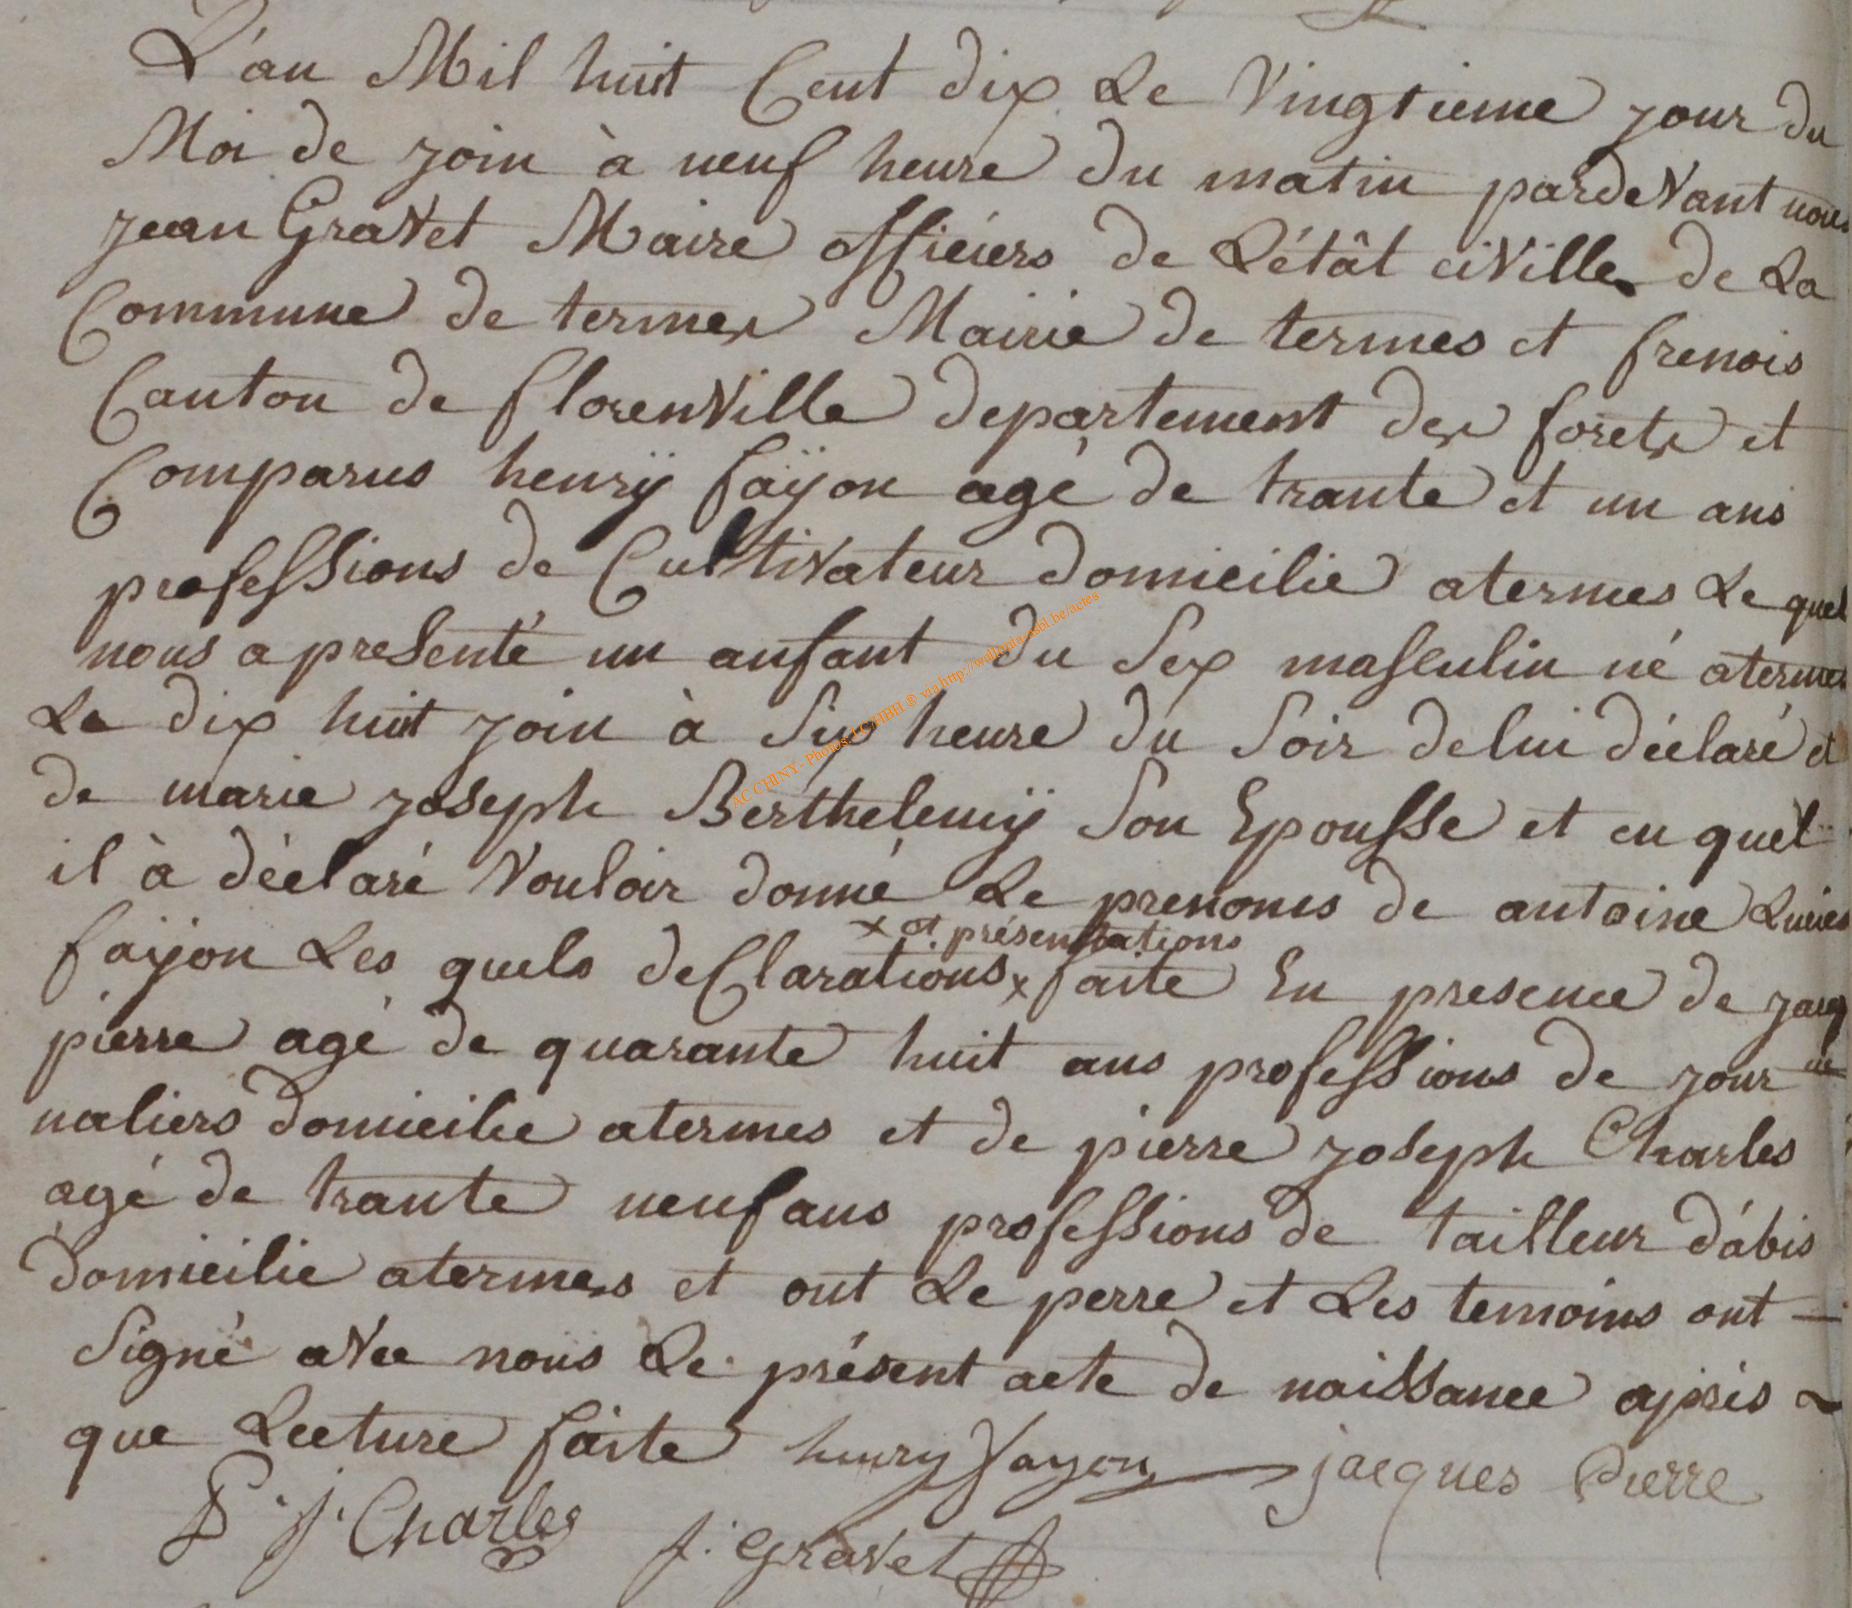 L'an Mil huit Cent dix Le Vingtieme jour du
Moi de join à neuf heure du matin pardeVant nous
jean GraVet Maire officiers de L'étât ciVille de La
Commune de termes Mairie de termes et frenois
Canton de florenVille departement des forets et
Comparus henrÿ faÿon agé de trante et un ans
professions de CultiVateur domicilie atermes Le quel
nous a presenté un anfant du Sex masculin né atermes
Le dix huit join à Six heure du Soir de lui déclaré et
de marie joseph Berthelemÿ Son Epousse et en quel
il à déclaré Vouloir donné Le prenoms de antoine
x et présentations
faÿon Les quels deClarations x faite En presence de jacq
ue
pierre agé de quarante huit ans professions de jour
naliers domicilie atermes et de pierre joseph Charles
agé de trante neuf ans professions de tailleur d'abis
domicilie atermes et ont Le perre et Les temoins ont —
Signé aVec nous Le présent acte de naissance après ~
que Lecture faite henry fayon jacques Pierre
P. j. Charles j. GraVet
AC CHINY - Photos: LC/HBH ® via http://wallonia-asbl.be/actes